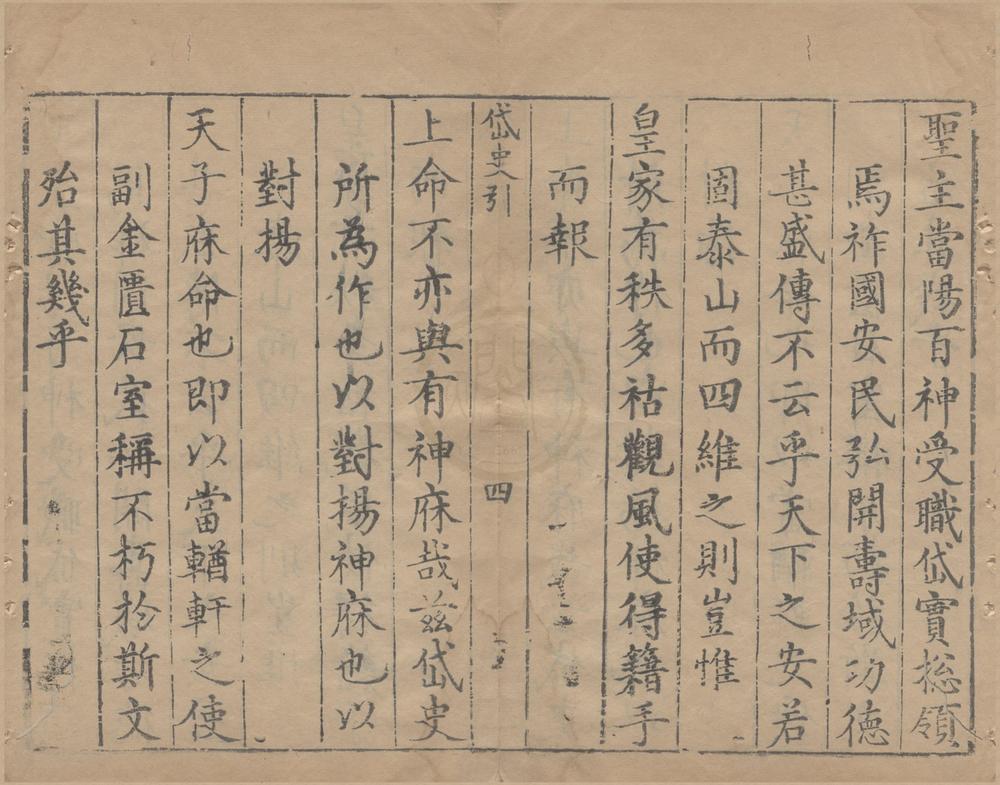 聖主當陽百神受職岱實総領
焉祚國安民弘開壽域功德
甚盛傳不云乎天下之安若
固泰山而四維之則豈惟
皇家有秩多祜觀風使得籍手
而報
岱史引
四
上命不亦與有神庥哉茲岱史
所為作也以對揚神庥也以
對揚
天子庥命也即以當輶軒之使
副金匱石室稱不朽於斯文
殆其幾乎